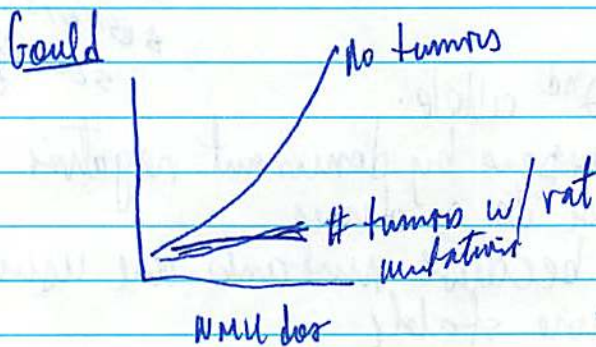 Gould
No tumors
# tumors w/ rat
mutations
NMU dos